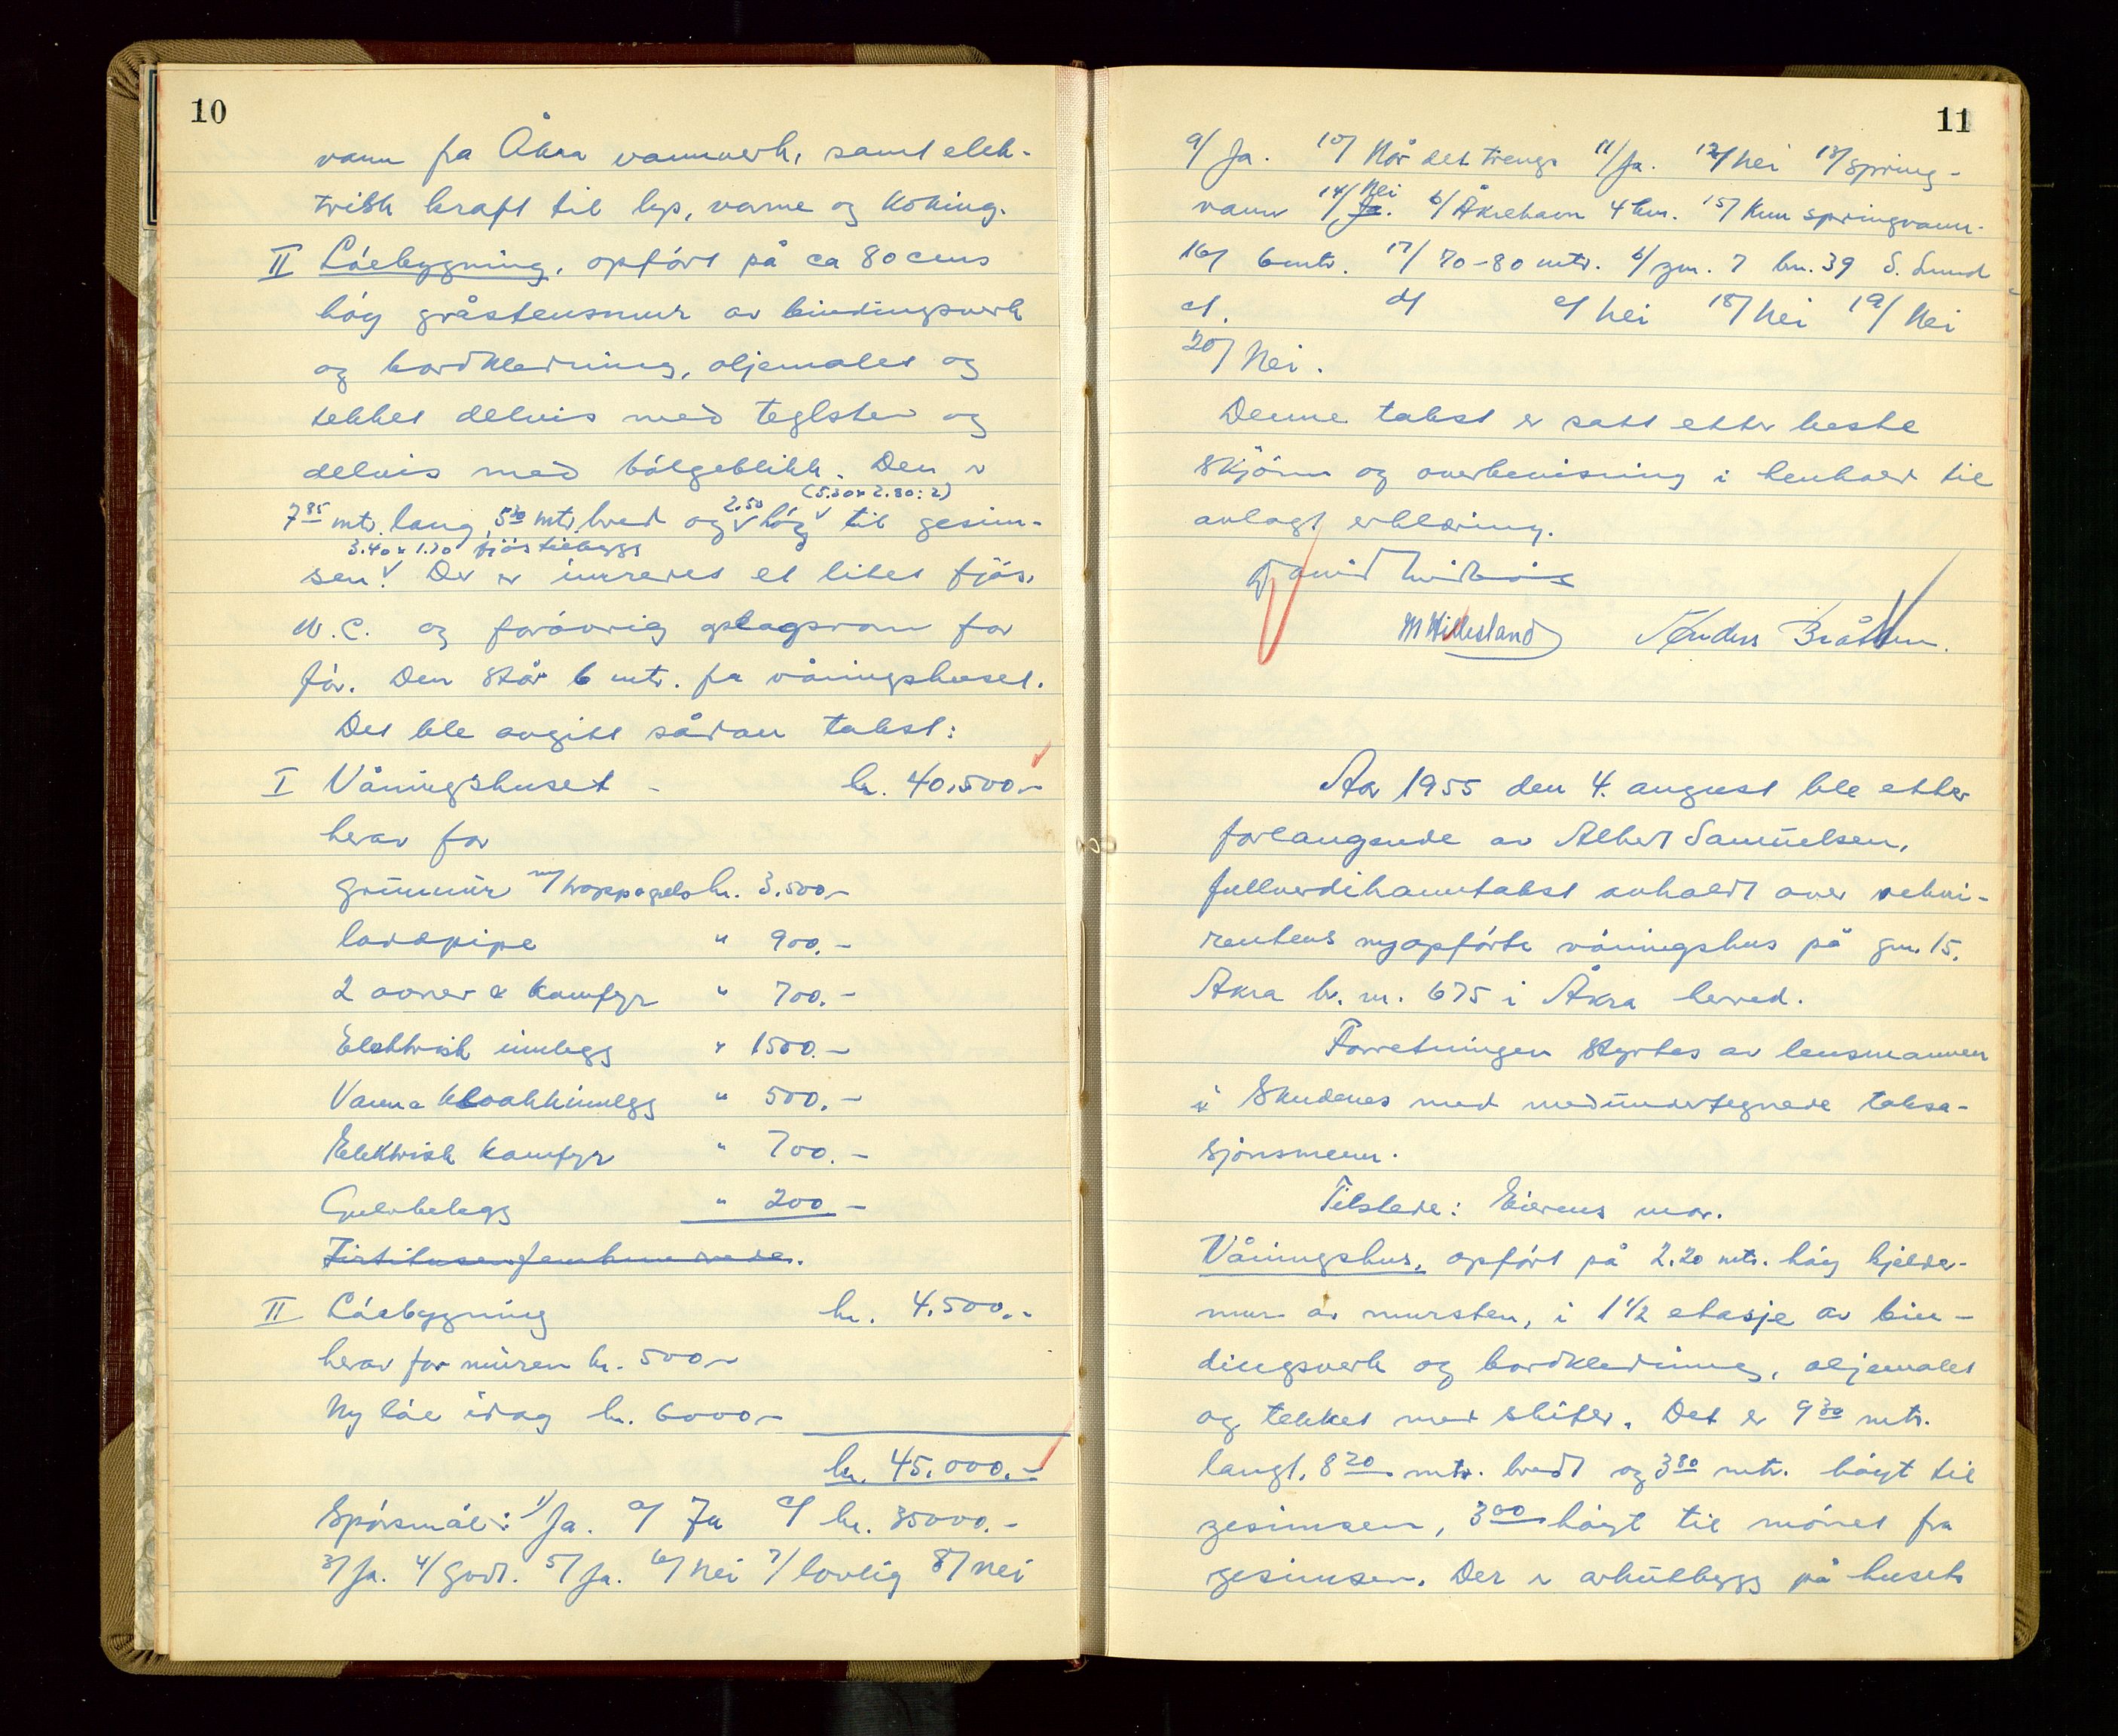 10
vann fra Åkra vannverk, samt elek-
trisk kraft til lys, varme og koking.
II Lóebygning, opfórt på ca 80 cens
hóg gråstensmur av bindingsverk
og bordkledning, oljemalet og
tekket delvis med teglsten og
delvis med bólgeblikk. Den er
(5.30 x 2.80:2)
7 85 mtr. lang, 5 30 mtr. bred og 2.50 hóg til gesim-
3.40 x 1.70 fjós tilbygg
sen. Der er innredet et litet fjós,
W.C. og foróvrig oplagsrom for
fór. Den står 6 mtr. fra våningshuset.
Det ble avgitt sådan takst:
I Våningshuset - kr. 40.500.-
herav for
grunnmur m/ trapp og kr. 3.500.-
ladepipe " 900.-
2 ovner & komfyr " 700.-
Elektrisk innlegg " 1500.-
Vann & kloakkinnlegg " 500.-
Elektrisk komfyr " 700.-
Gulvbelegg " 200.-
Firtitusenfemhundrede.
II Lóebygning kr. 4.500.-
herav for muren kr. 500.-
Ny lóe idag kr. 6000.-
kr. 45.000.-
Spórsmål: 1/ Ja. a/ Ja c/ kr. 35000.-
3/ Ja. 4/ Godt. 5/ Ja. 6/ Nei 7/ lovlig 8/ Nei
11
9/ Ja. 10/ Når det trengs 11/ Ja. 12/ Nei 13/ Spring-
vann 14/ Ja. Nei b/ Åkrehavn 4 km. 15/ Kun springvann.
16/ 6 mtr. 17/ 70-80 mtr. b/ gm. 7 bn. 39 S. Lund
c/. d/ e/ Nei 18/ Nei 19/ Nei
20/ Nei.
Denne takst er satt etter beste
skjónn og overbevisning i henhold til
avlagt erklæring.
David
M Hillesland Anders Bråten.
Aar 1955 den 4. august ble etter
forlangende av Albert Samuelsen,
fullverdibranntakst avholdt over rekvi-
rentens nyopfórte våningshus på gm. 15.
Åkra br. nr. 675 i Åkra herred.
Forretningen styrtes av lensmannen
i Skudenes med medundertegnede taksa-
sjonsmenn.
Tilstede: Eierens mor.
Våningshus, opfórt på 2.20 mtr. hóg kjelder-
mur av mursten, i 1 1/2 etasje av bin-
dingsverk og bordkledning, oljemalet
og tekket med skifer. Det er 9 30 mtr.
langt, 8 20 mtr. bredt og 3 80 mtr. hóyt til
gesimsen, 3 00 hóyt til mónet fra
gesimsen. Der er arkutbygg på husets